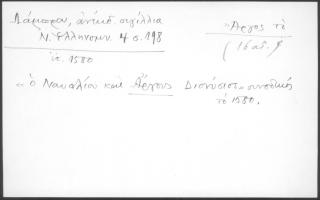 Λάμπρου, ἀνέκδ. σιγίλλια
Ν. Ἑλληνομν. 4 σ. 198
Ἄργος τὸ
(16 αἰ.)
ἔτ. 1580
"ὁ Ναυπλίου καὶ Ἄργους Διονύσιος" συνοδικός
τὸ 1580.